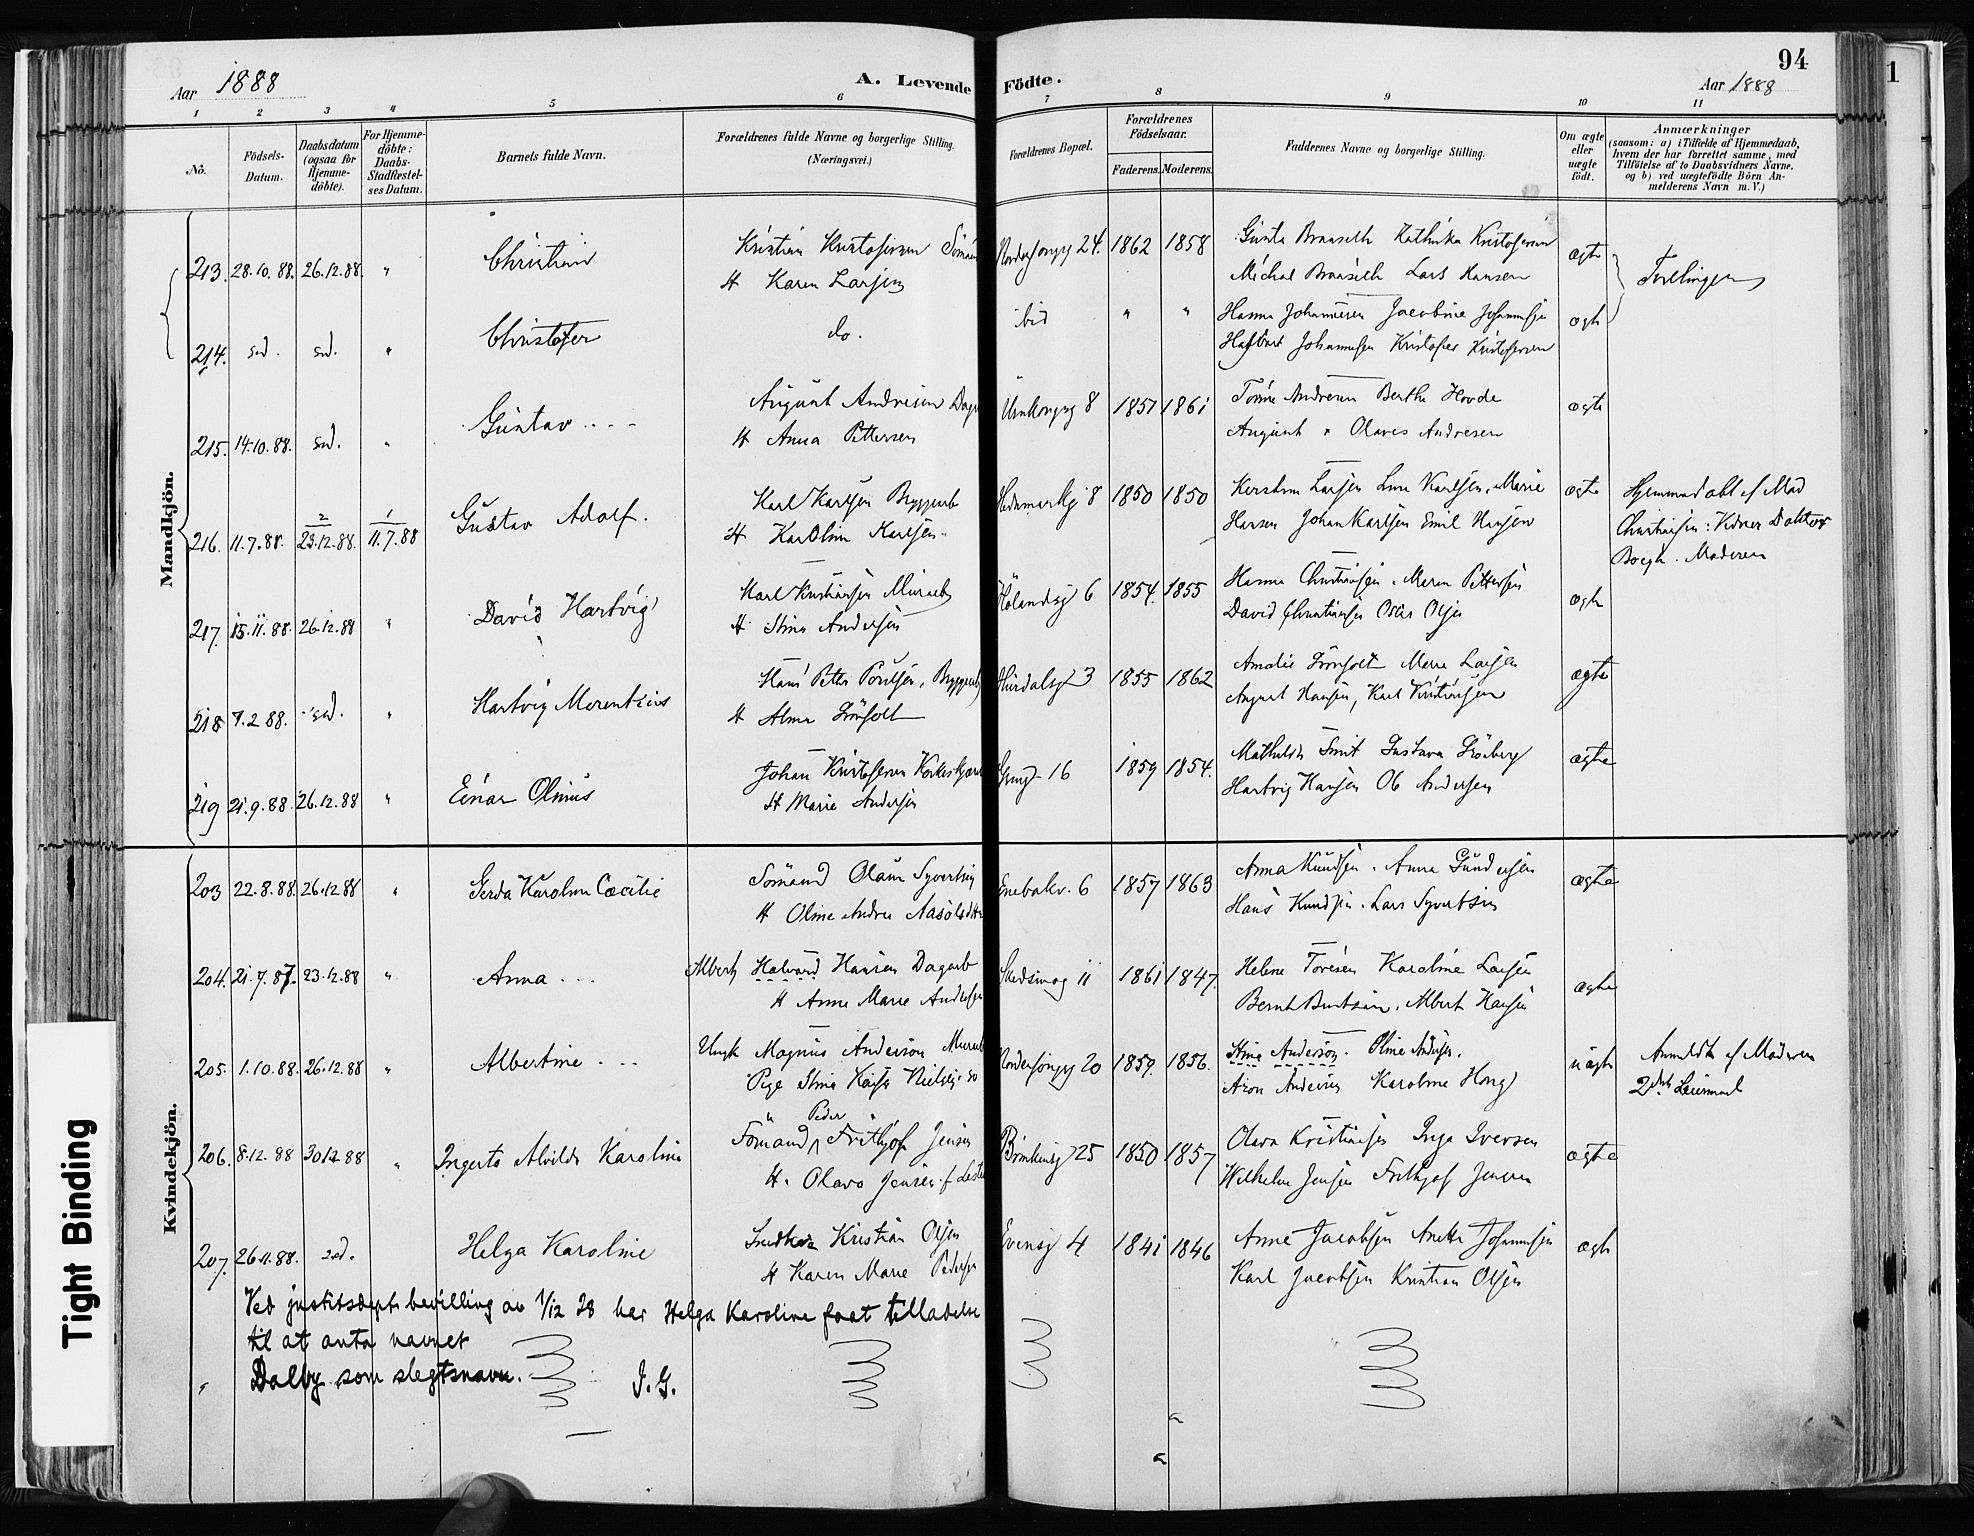 94
1
Aar 1888
A. Levende Födte.
Aar 1888
1 2 3 4 5 6 7 8 9 10 11
No.
Födsels-
Datum.
Daabsdatum
(ogsaa for
Hjemme-
döbte).
For Hjemme-
döbte:
Daabs-
Stadfæstel-
ses Datum.
Barnets fulde Navn.
Forældrenes fulde Navne og borgerlige Stilling.
(Næringsvei.)
Forældrenes Bopæl.
Forældrenes
Födselsaar.
Faderens. Moderens.
Faddernes Navne og borgerlige Stilling.
Om ægte
eller
uægte
födt.
Anmærkninger
(saasom: a) i Tilfælde af Hjemmedaab,
hvem der har forrettet samme, med
Tilföielse af to Daabsvidners Navne.
og b) ved uægtefödte Börn An-
melderens Navn m. V.)
Mandkjön.
213. 28.10.88. 26.12.88. " Christian Kristian Kristofersen 24. 1862 1858 Kathinka Kristofersen ægte
H Karen Larsen Michal Lars Hansen Tvillinger
214. sod. sod. " Christofer do. ibid " " Hanna Johannesen Jacobine Johannesen ægte
Johannesen Kristofer Kristofersen
215. 14.10.88. sod. " Gustav August Andresen 8 1857 1861 Andresen Berthe Hovde ægte
H Anna Pettersen August " Olaves Andresen
216. 11.7.88. 2 23.12.88. 1 11.7.88 Gustav Adolf. Karl Karlsen Bryggearb Hedemarksg 8 1850 1850 Larsen Karlsen, Marie ægte Hjemmedøbt af Mad
H Karoline Karlsen Hansen Johan Karlsen Emil Hansen Christiansen: Vidner Doktor
Boegh. Moderen
217. 15.11.88. 26.12.88 " David Hartvig Karl Kristiansen Murarb Hølandsg 6 1854. 1855 Hanna Christiansen. Maren Pettersen ægte
H. Stina Andersen David Christiansen Oscar Olsen
218 7.2.88. sod. " Hartvig Morentzius Hans Petter Poulsen, Bryggearb Hurdalsg 3 1855 1862 Amalie Marie Larsen ægte
H Alma August Hansen, Karl Kristiansen
219 21.9.88. 26.12.88 " Einar Olinius Johan Kristofersen 16 1859 1854. Mathilde Smit Gustava ægte
H Marie Andersen Hartvig Hansen Ole Andersen
Kvindekjön.
203 22.8.88. 26.12.88 " Gerda Karoline Cæcilie Sømand Olaus Syvertsen Enebakv. 6 1857 1863 Anna Knudsen. Anna Gundersen ægte
H Oline Andrea Hans Knudsen. Lars Syvertsen
204. 21.7.87. 23.12.88 " Anna Albert Halvard Hansen Dagarb 11 1861 1847. Helene Karoline Larsen ægte
H Anne Marie Andersen Bernt Berntsen, Albert Hansen
205. 1.10.88. 26.12.88 " Albertine Ungk Magnus Anderson Murarb 20 1859. 1856. Stina Anderson. Oline Andersen. uægte Anmeldt af Moderen
Pige Stina Kaisa Aron Andersen Karoline 2det Leiermaal
206. 8.12.88 30.12.88 " Ingerts Alvilde Karoline Sømand Peder Frithjof Jensen 25 1850 1857 Olava Kristiansen Inga Iversen ægte
H. Olava Jensen Wilhelm Jensen Frithjof Jensen
207. 26.11.88. sod. Helga Karoline Snedker Kristian Olsen Evensg 4 1841 1846 Anne Jacobsen Anette Johannesen ægte
H Karen Marie Pedersen Karl Jacobsen Kristian Olsen
Ved justitsdepts bevilling av 1/12 28 har Helga Karoline faat tilladelse
til at anta navnet
Dalby som slegtsnavn. J. G.
Tight Binding